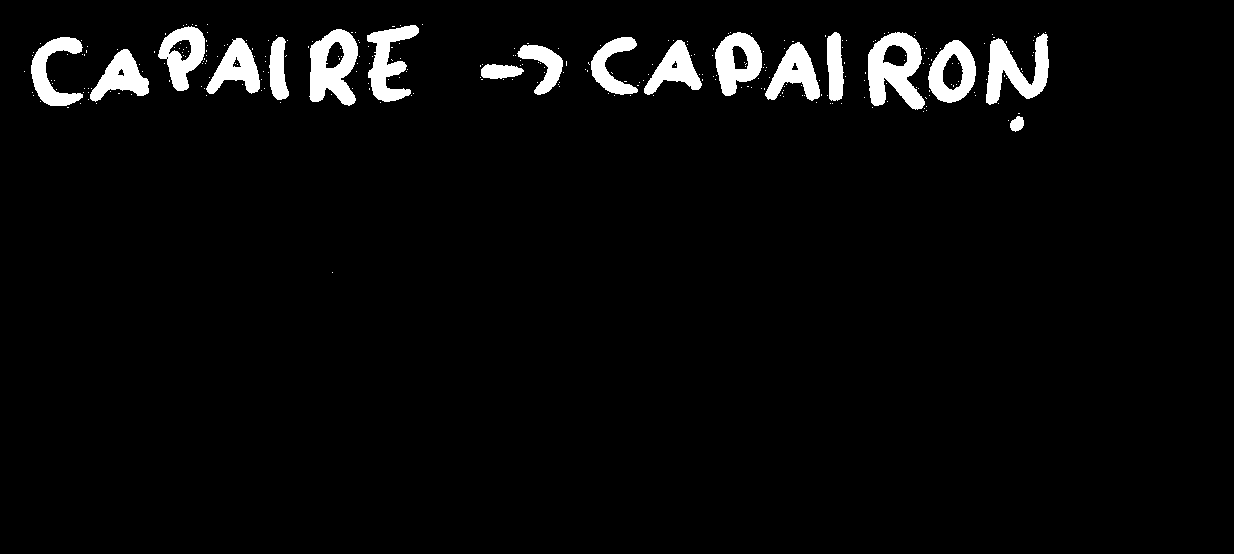 CAPAIRE → CAPAIROṆ